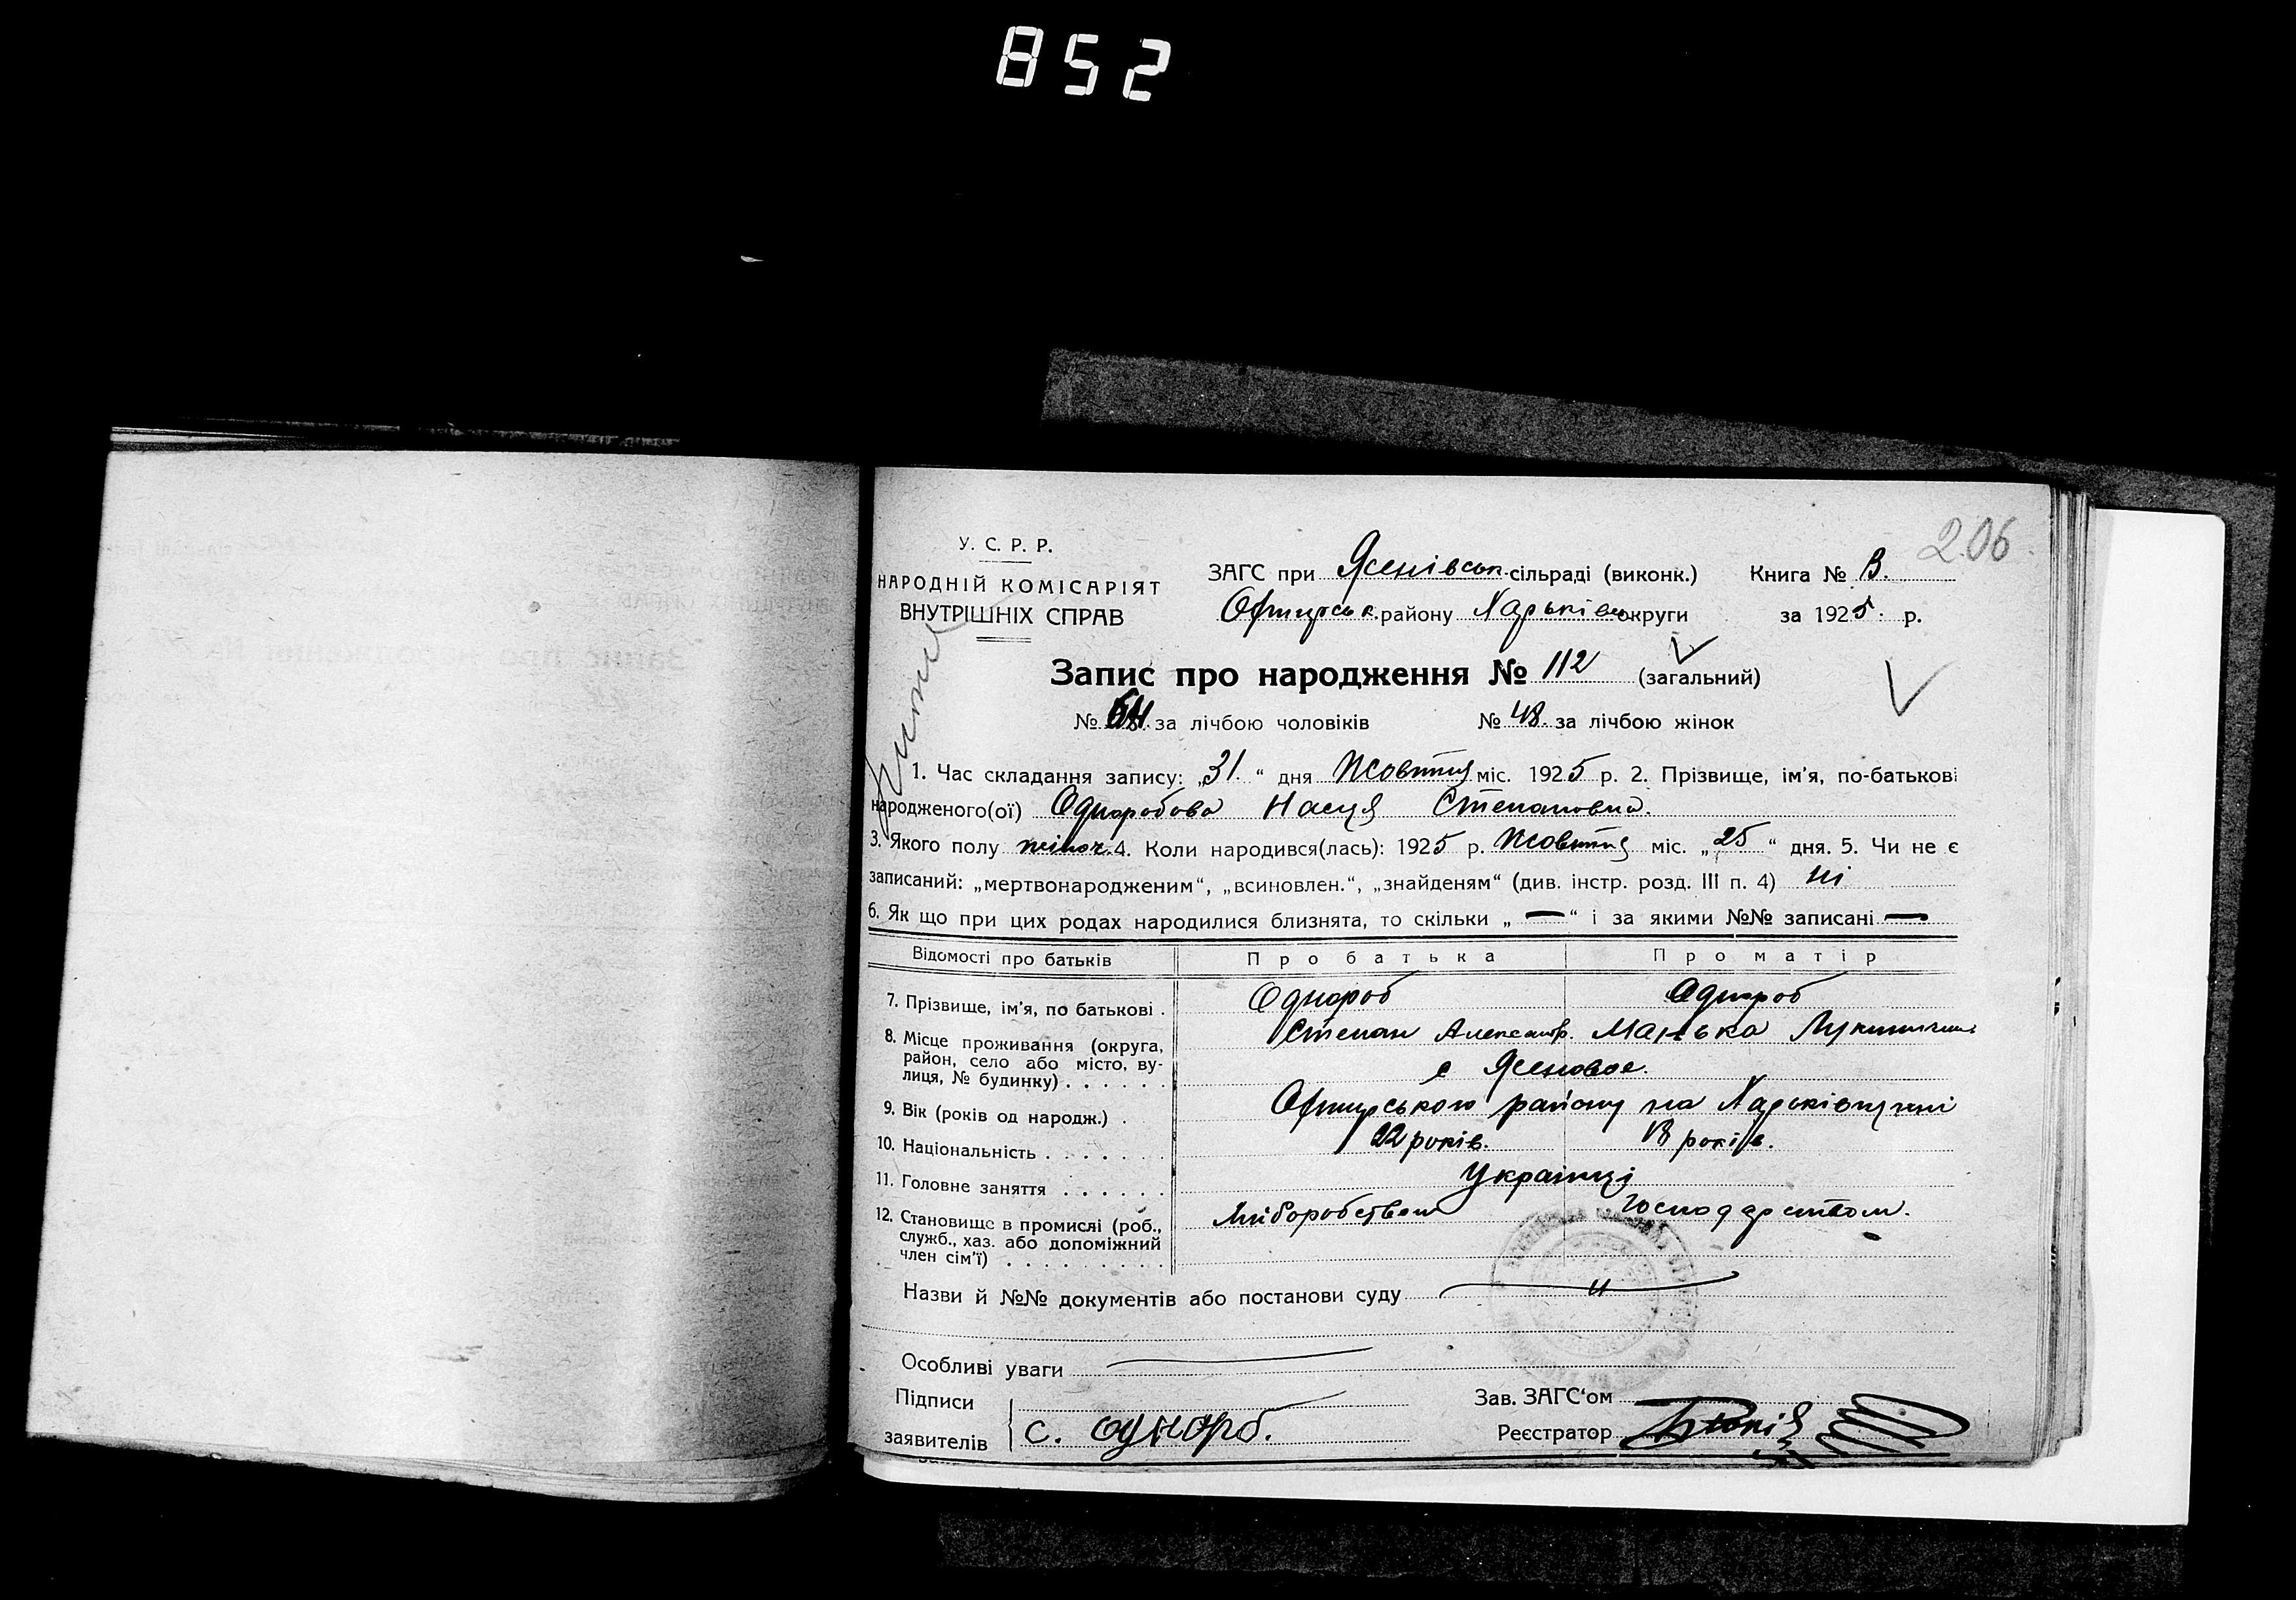 852
206
У. С. Р. Р.
НАРОДНІЙ КОМІСАРІЯТ
ВНУТРІШНІХ СПРАВ
ЗАГС при Ясенівськ. сільраді (виконк.) Книга № В.
району Харьків округи за 1925 р.
Запис про народження № 112 (загальний)
№ за лічбою чоловіків № 48. за лічбою жінок
1. Час складання запису: „31.“ дня Жовтня міс. 1925 р. 2. Прізвище, ім'я, по-батькові
народженого(ої) Одноробова Настя Степановна.
3. Якого полу жіноч. 4. Коли народився(лась): 1925 р. Жовтня міс. „25“ дня. 5. Чи не є
записаний: „мертвонародженим“, „всиновлен.“, „знайденям“ (див. інстр. розд. III п. 4) ні
6. Як що при цих родах народилися близнята, то скільки „—“ і за якими №№ записані —
Відомості про батьків Про батька Про матір
7. Прізвище, ім'я, по батькові . Однороб Однороб
Степан Александр. Манька
8. Місце проживання (округа,
район, село або місто, ву-
лиця, № будинку) . . . . . .
с Ясеновое.
району на Харьківщині
9. Вік (років од народж.) . 22 років. 18 років.
10. Національність . . . . . . . Українці
11. Головне заняття . . . . . . Хліборобством Господарством.
12. Становище в промислі (роб.,
служб., хаз. або допоміжний
член сім'ї) . . . . . . . . . .
Назви й №№ документів або постанови суду „
Особливі уваги
Підписи
заявителів С. Однорб.
Зав. ЗАГС'ом
Реєстратор